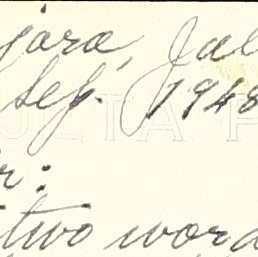 jara, Jal
Sep. 1948
ULTA
r:
two word